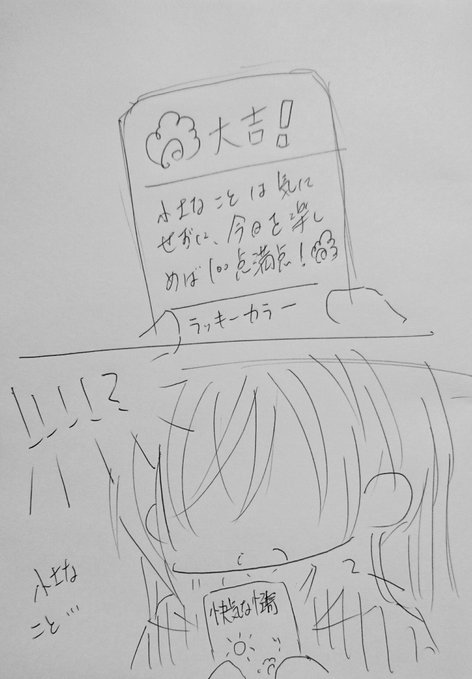 大吉!
小さなことは気に
せずに、今日を楽し
めば100点満点!
ラッキーカラー
!!!!?
小さな
こと…